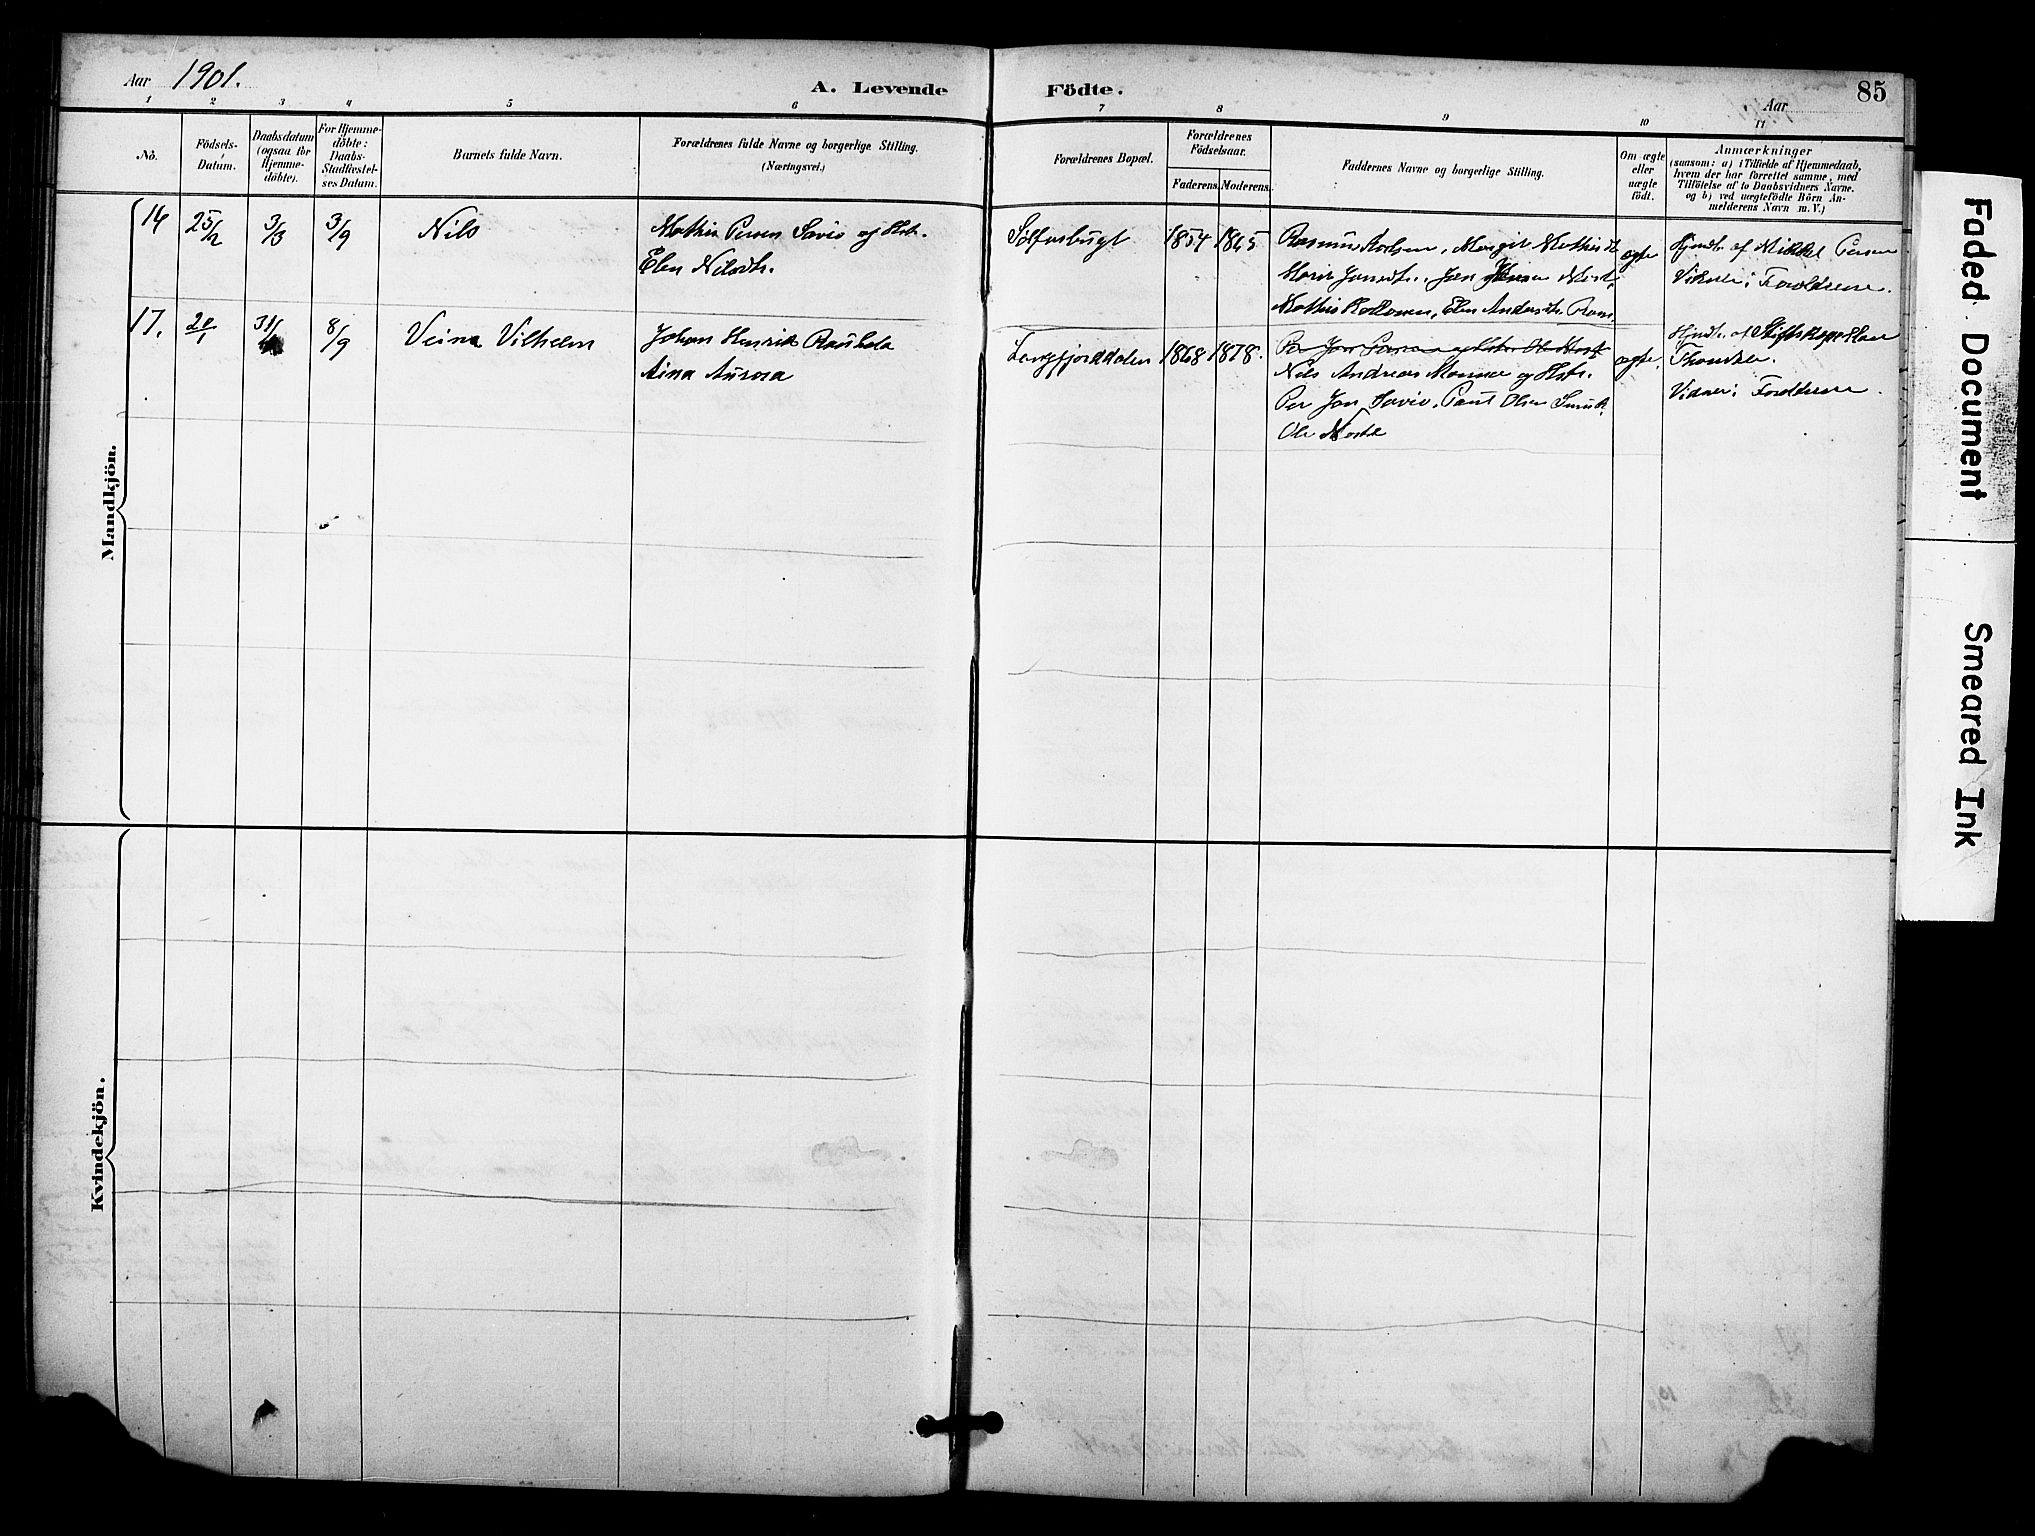 Aar 1901.
A. Levende Födte.
Aar
85
1 2 3 4 5 6 7 8 9 10 11
No.
Födsels-
Datum.
Daabsdatum
(ogsaa for
Hjemme-
döbte).
For Hjemme-
döbte:
Daabs-
Stadfæstel-
ses Datum.
Barnets fulde Navn.
Forældrenes fulde Navne og borgerlige Stilling.
(Næringsvei.)
Forældrenes Bopæl.
Forældrenes
Födselsaar.
Faderens. Moderens.
Faddernes Navne og borgerlige Stilling.
Om ægte
eller
uægte
födt.
Anmærkninger
(saasom: a) i Tilfælde af Hjemmedaab,
hvem der har forrettet samme, med
Tilföielse af to Daabsvidners Navne.
og b) ved uægtefödte Börn An-
melderens Navn m. V.)
Mandkjön.
16 25/2 3/3 3/9 Nils
Mathis Persen Savio og Hst.
Elen Nilsdtr.
1854 1865
Rasmus Margit Mathisdt
Marie Jon
Mathis Elen Andersdtr.
ægte
Hjmdt. af Mikkel Persen
Vidner: Forældrene.
17. 20/1 8/9 Veina Vilhelm
Johan Henrik
Aina Aurora
Langfjorddalen 1868 1878.
Nils Andreas og Hstr.
Per Jon Savio, Paul Olsen
Ole
ægte.
Hjmdt. af Stiftskapellan
Vidner: Forældrene.
Kvindekjön.
Faded Document
Smeared Ink